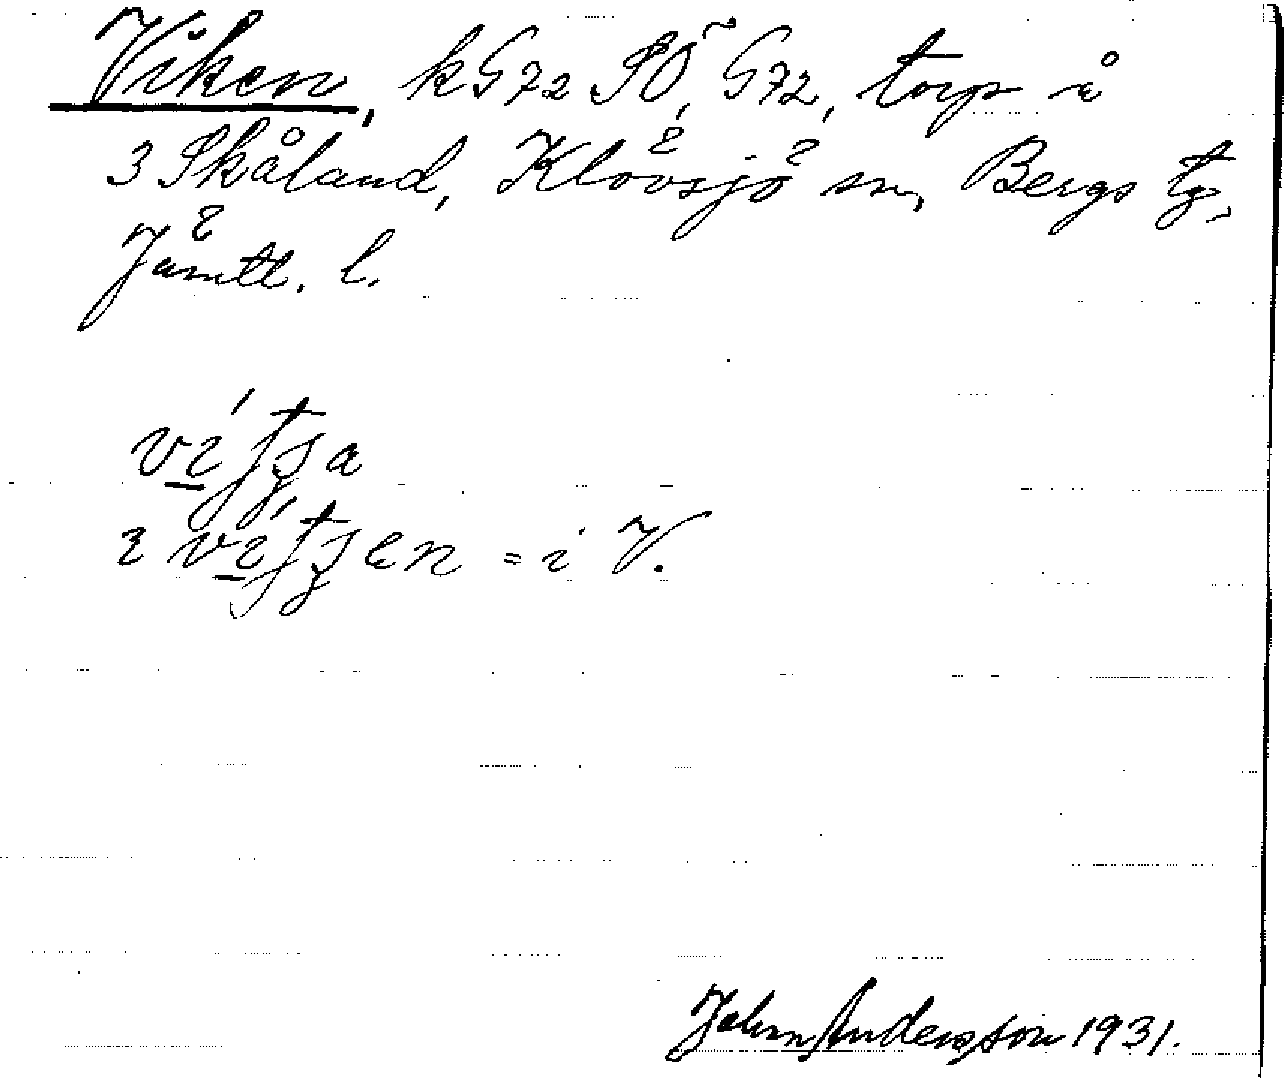 Viken, kG72 SÖ, G72, torp å
3 Skåland, Klövsjö sn, Bergs tg,
Jämtl. l.
vi̲ʹtʃa
i vi̲ʹtʃen = i V.
John Andersson 1931.